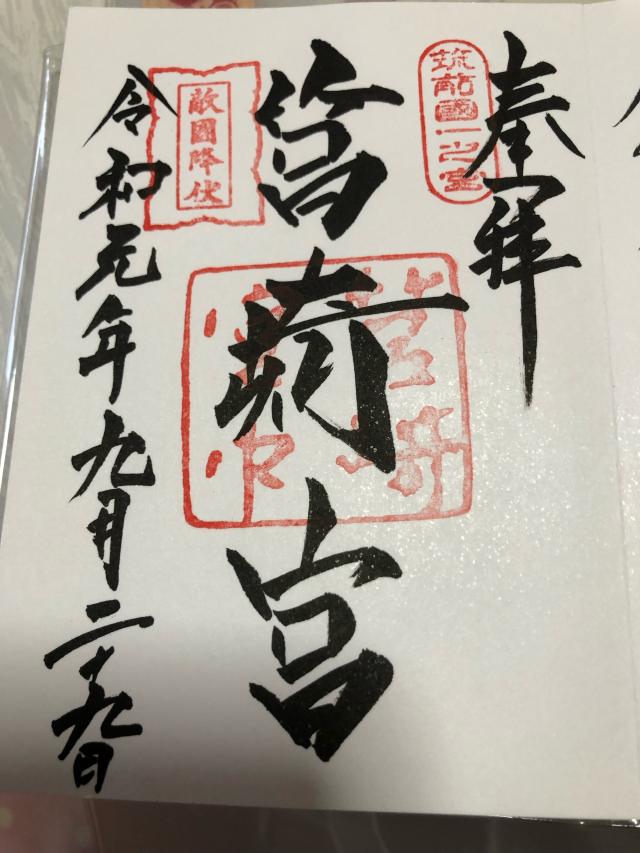 奉拝
筑前國一之宮
筥崎宮
筥崎
宮印
敵國降伏
令和元年九月二十九日